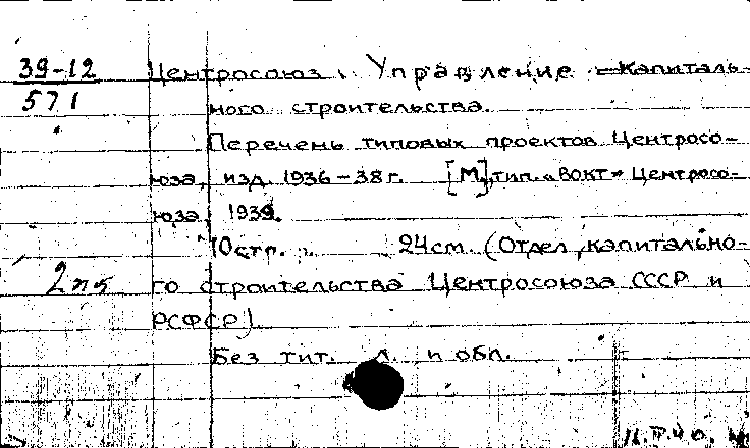 39-12
571
Центросоюз. Управление капиталь-
ного строительства.
Перечень типовых проектов Центросо-
юза, изд. 1936-38 г. [М], тип. «ВОКТ» Центросо-
юза, 1939.
10 стр. 24 см. (Отдел капитально-
2 пб го строительства Центросоюза СССР и
РСФСР).
Без тит. л. и обл.